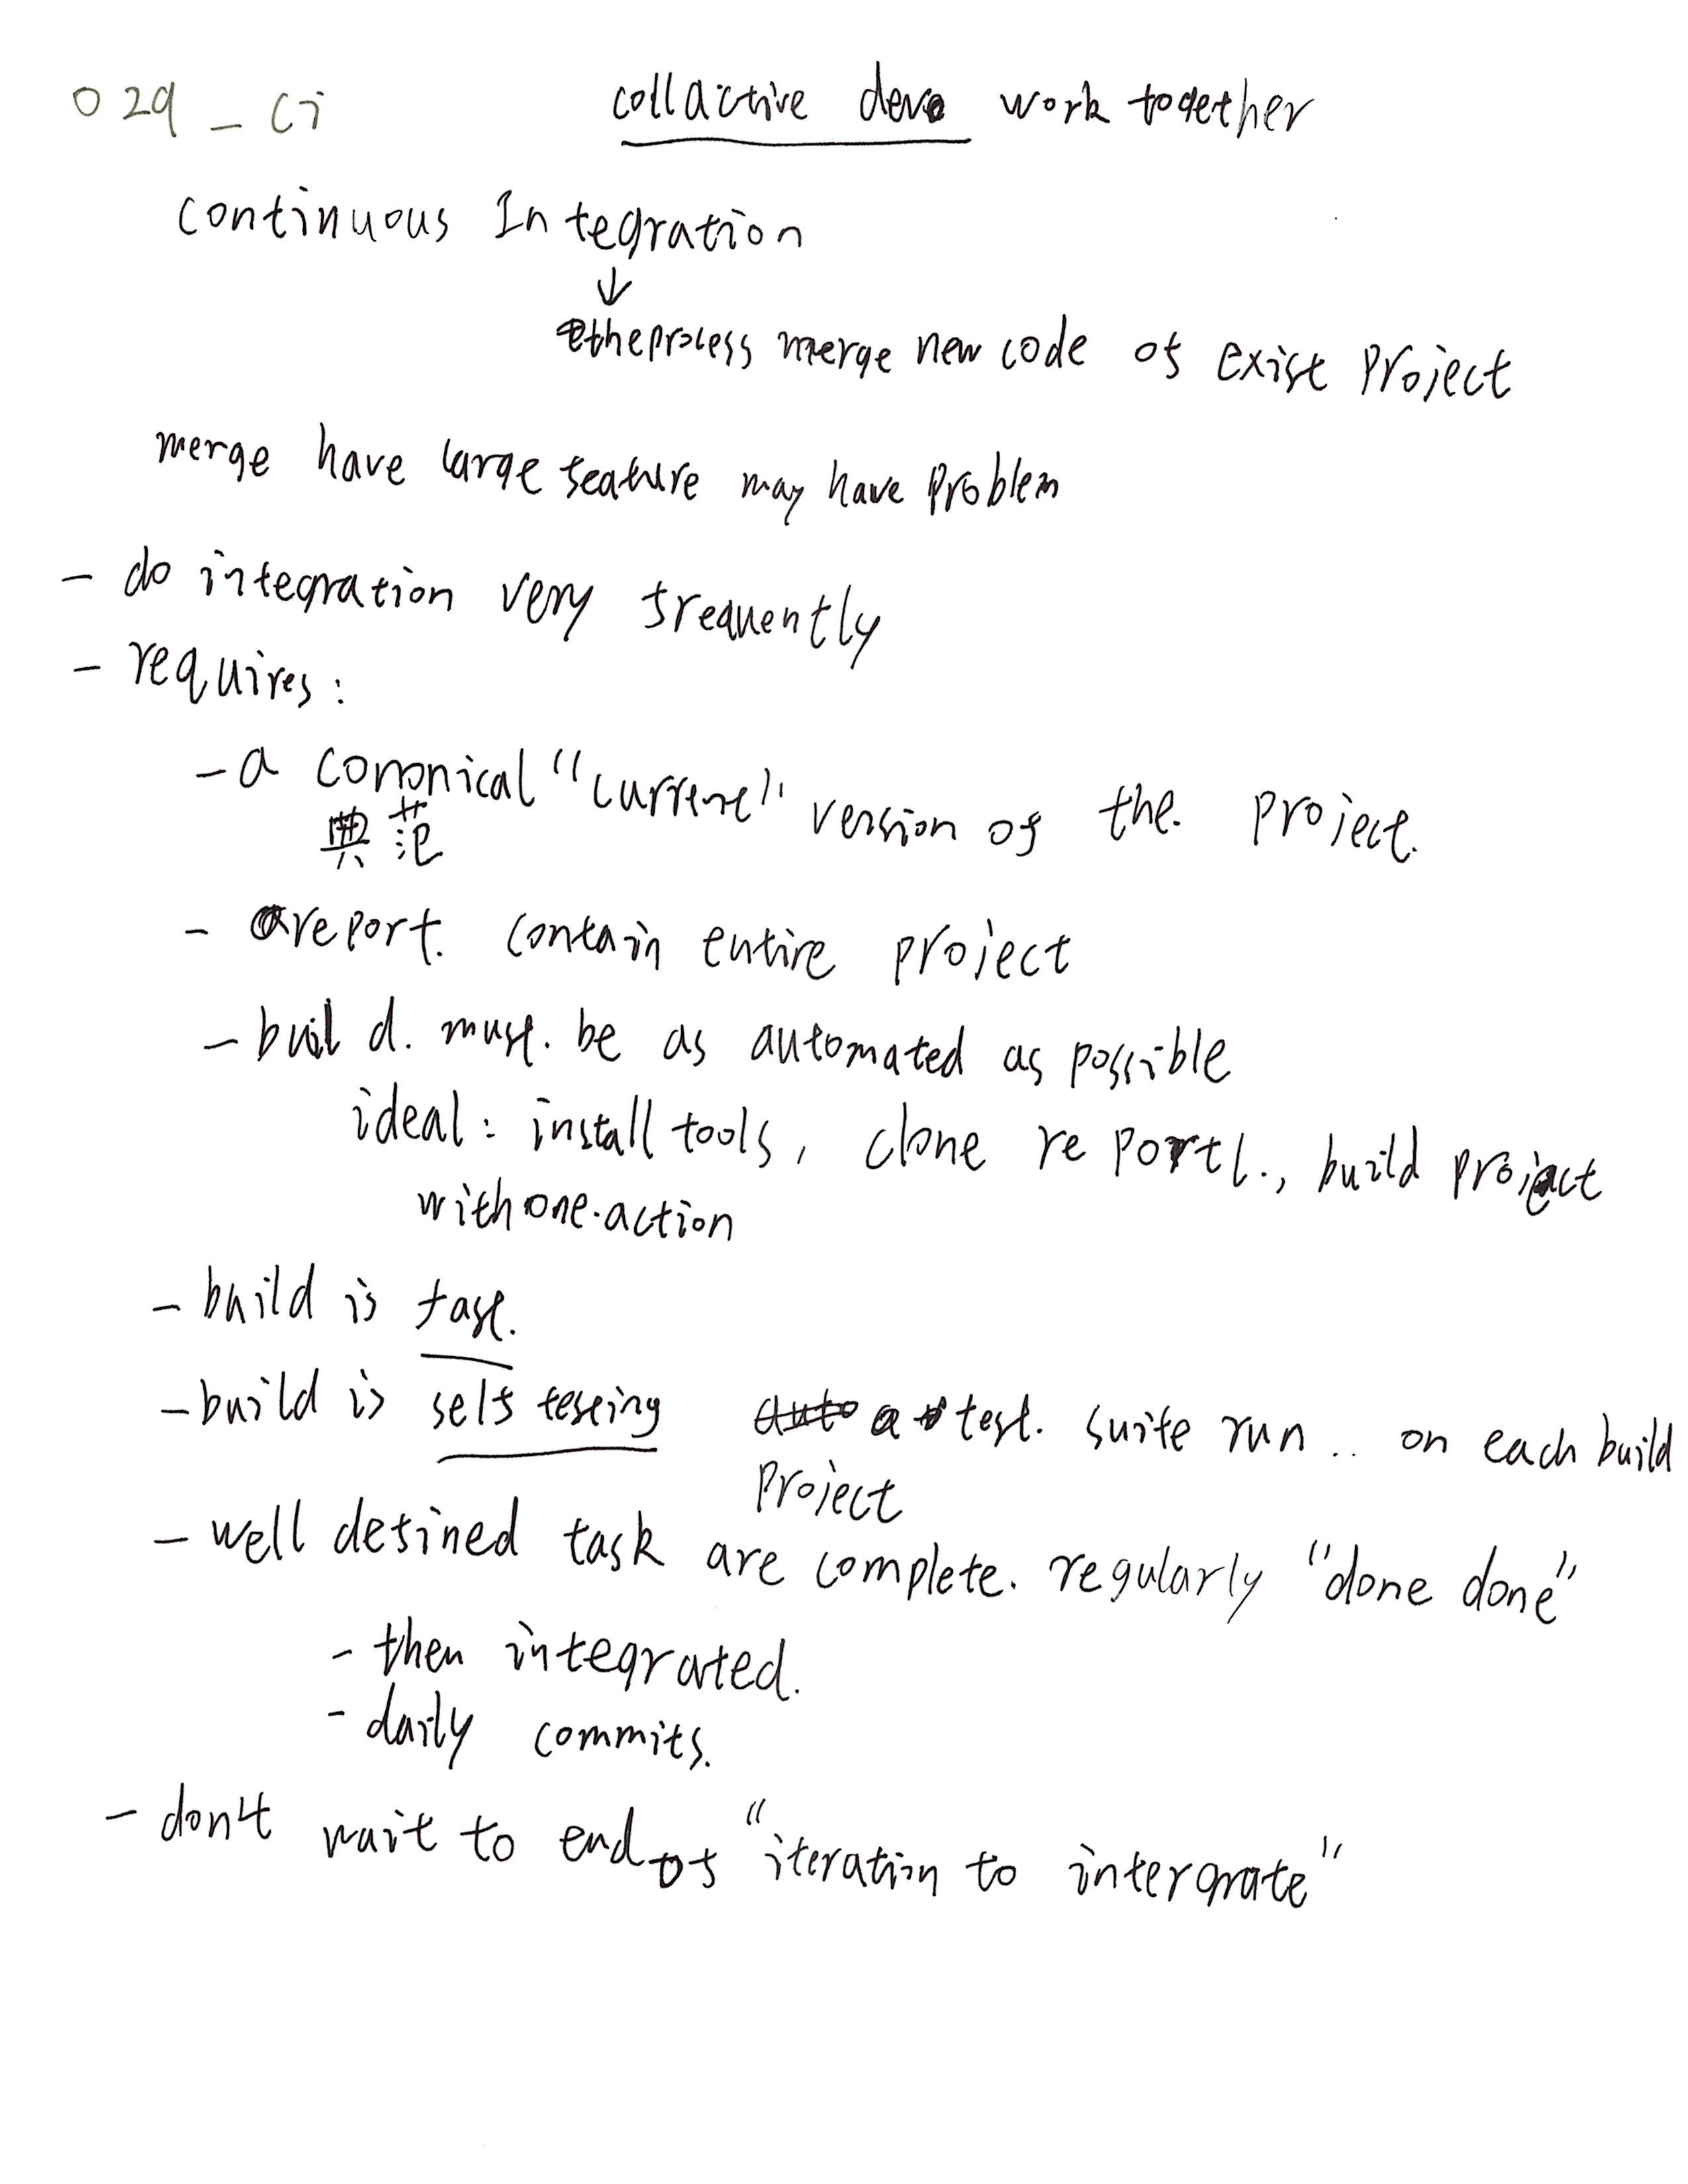 029_Ci
collactive deve work together
continuous Integration
↓
the process merge new code of exist project
merge have large feature may have problem
- do integration very frequently
- requires:
- a cononical "current" version of the project.
典范
- a report. contain entire project
- build. must. be as automated as possible
ideal: install tools, clone report., build project
with one.action
- build is fast.
- build is self testing a test. suite run.. on each build
project
- well defined task are complete. regularly "done done"
- then integrated.
- daily commits.
- don't wait to end of "iteration to intergrate"